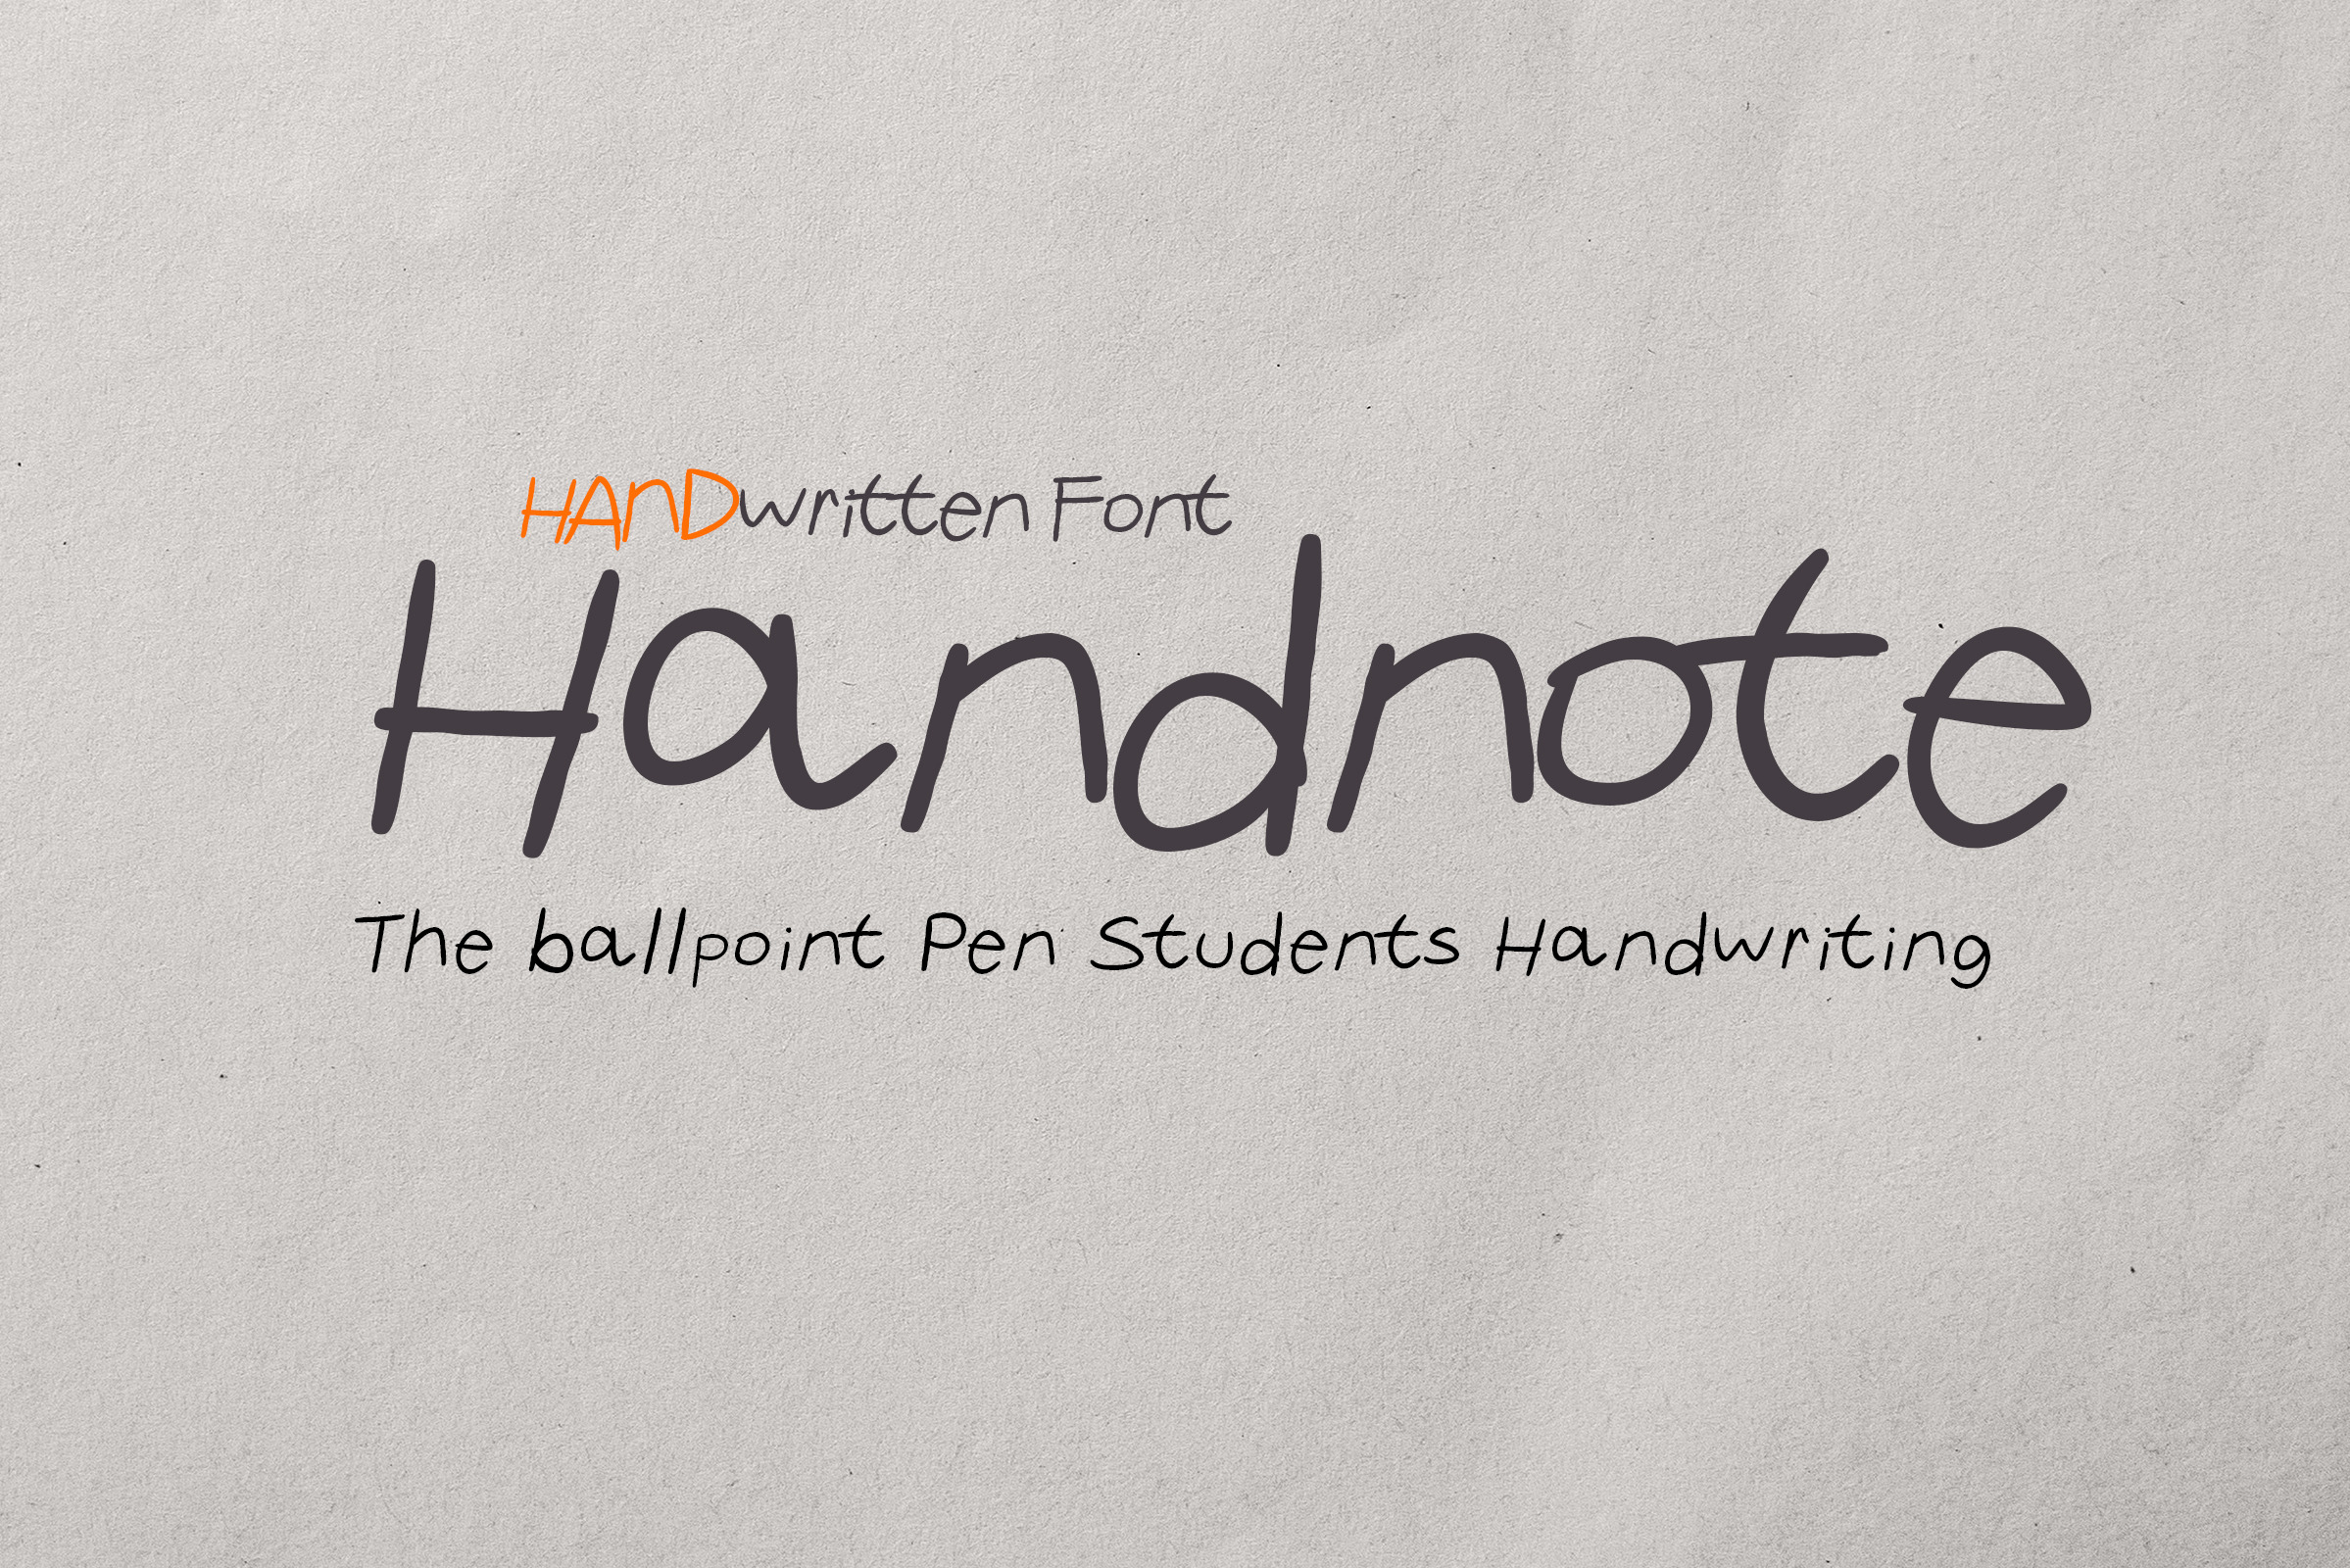 HAnDwritten Font
Handnote
The ballpoint Pen Students Handwriting